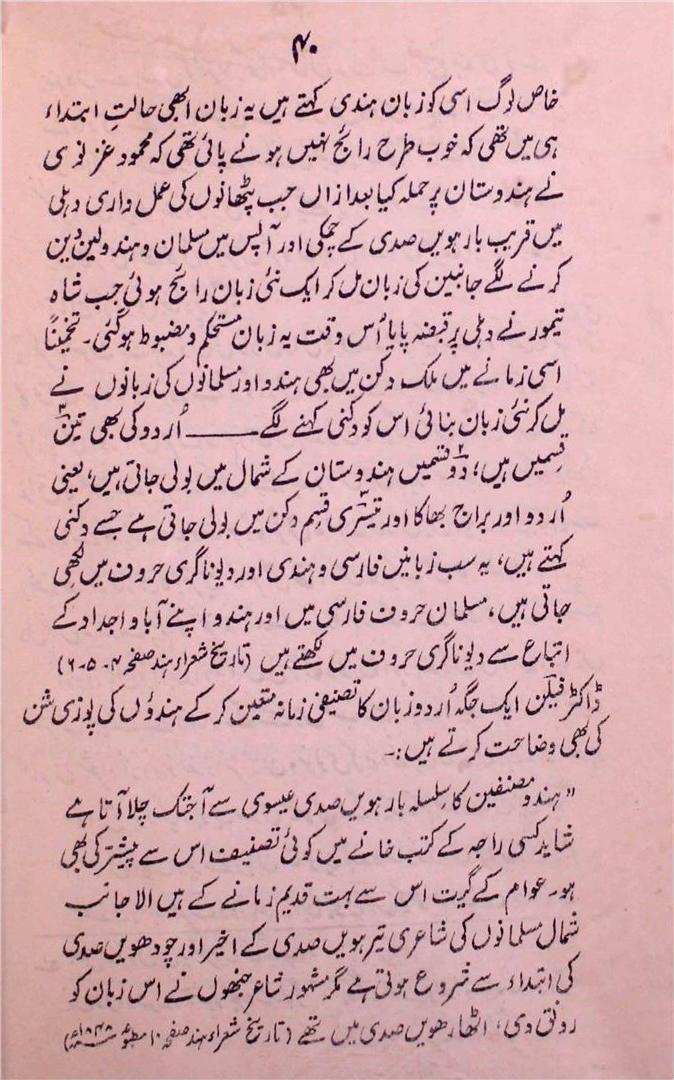 ۴۰
خاص لوگ اسی کو زبان ہندی کہتے ہیں یہ زبان ابھی حالتِ ابتداء
ہی میں تھی کہ خوب طرح رائج نہیں ہونے پائی تھی کہ محمود غزنوی
نے ہندوستان پر حملہ کیا بعد ازاں جب پٹھانوں کی عمل داری دہلی
میں قریب بارہویں صدی کے چمکی اور آپس میں مسلمان و ہندو لین دین
کرنے لگے جانبین کی زبان مل کر ایک نئی زبان رائج ہوئی جب شاہ
تیمور نے دہلی پر قبضہ پایا اُس وقت یہ زبان مستحکم و مضبوط ہو گئی۔ تخمیناً
اسی زمانے میں ملک دکن میں بھی ہندو اور مسلمانوں کی زبانوں نے
مل کر نئی زبان بنائی اس کو دکنی کہنے لگے ــــــــ اُردو کی بھی تین۳
قسمیں ہیں؛ دو۲ قسمیں ہندوستان کے شمال میں بولی جاتی ہیں، یعنی
اُردو اور براج بھاکا اور تیسری قسم دکن میں بولی جاتی ہے جسے دکنی
کہتے ہیں، یہ سب زبانیں فارسی و ہندی اور دیوناگری حروف میں لکھی
جاتی ہیں، مسلمان حروف فارسی میں اور ہندو اپنے آبا و اجداد کے
اتباع سے دیوناگری حروف میں لکھتے ہیں (تاریخ شعراء ہند صفحہ ۴-۵-۶)
ڈاکٹر فیلن ایک جگہ اُردو زبان کا تصنیفی زمانہ متعین کر کے ہندوٗں کی پوزیشن
کی بھی وضاحت کرتے ہیں:۔
"ہندو مصنفین کا سلسلہ بارہویں صدی عیسوی سے آجتک چلا آتا ہے
شاید کسی راجہ کے کتب خانے میں کوئی تصنیف اس سے پیشتر کی بھی
ہو۔ عوام کے گیت اس سے بہت قدیم زمانے کے ہیں الا جانب
شمال مسلمانوں کی شاعری تیرہویں صدی کے اخیر اور چودھویں صدی
کی ابتداء سے شروع ہوتی ہے مگر مشہور شاعر جنھوں نے اس زبان کو
رونق دی، اٹھارھویں صدی میں تھے (تاریخ شعراء ہند صفحہ ۱۰ مطبوعہ ۱۸۴۸ء)